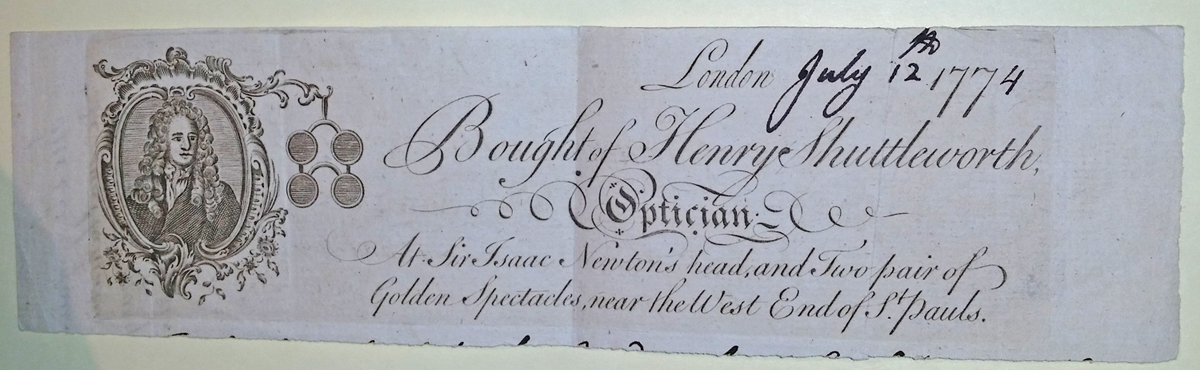 London July 12th 1774
Bought of Henry Shuttleworth,
Optician
At Sir Isaac Newton's head, and Two pair of
Golden Spectacles, near the West End of St. Pauls.